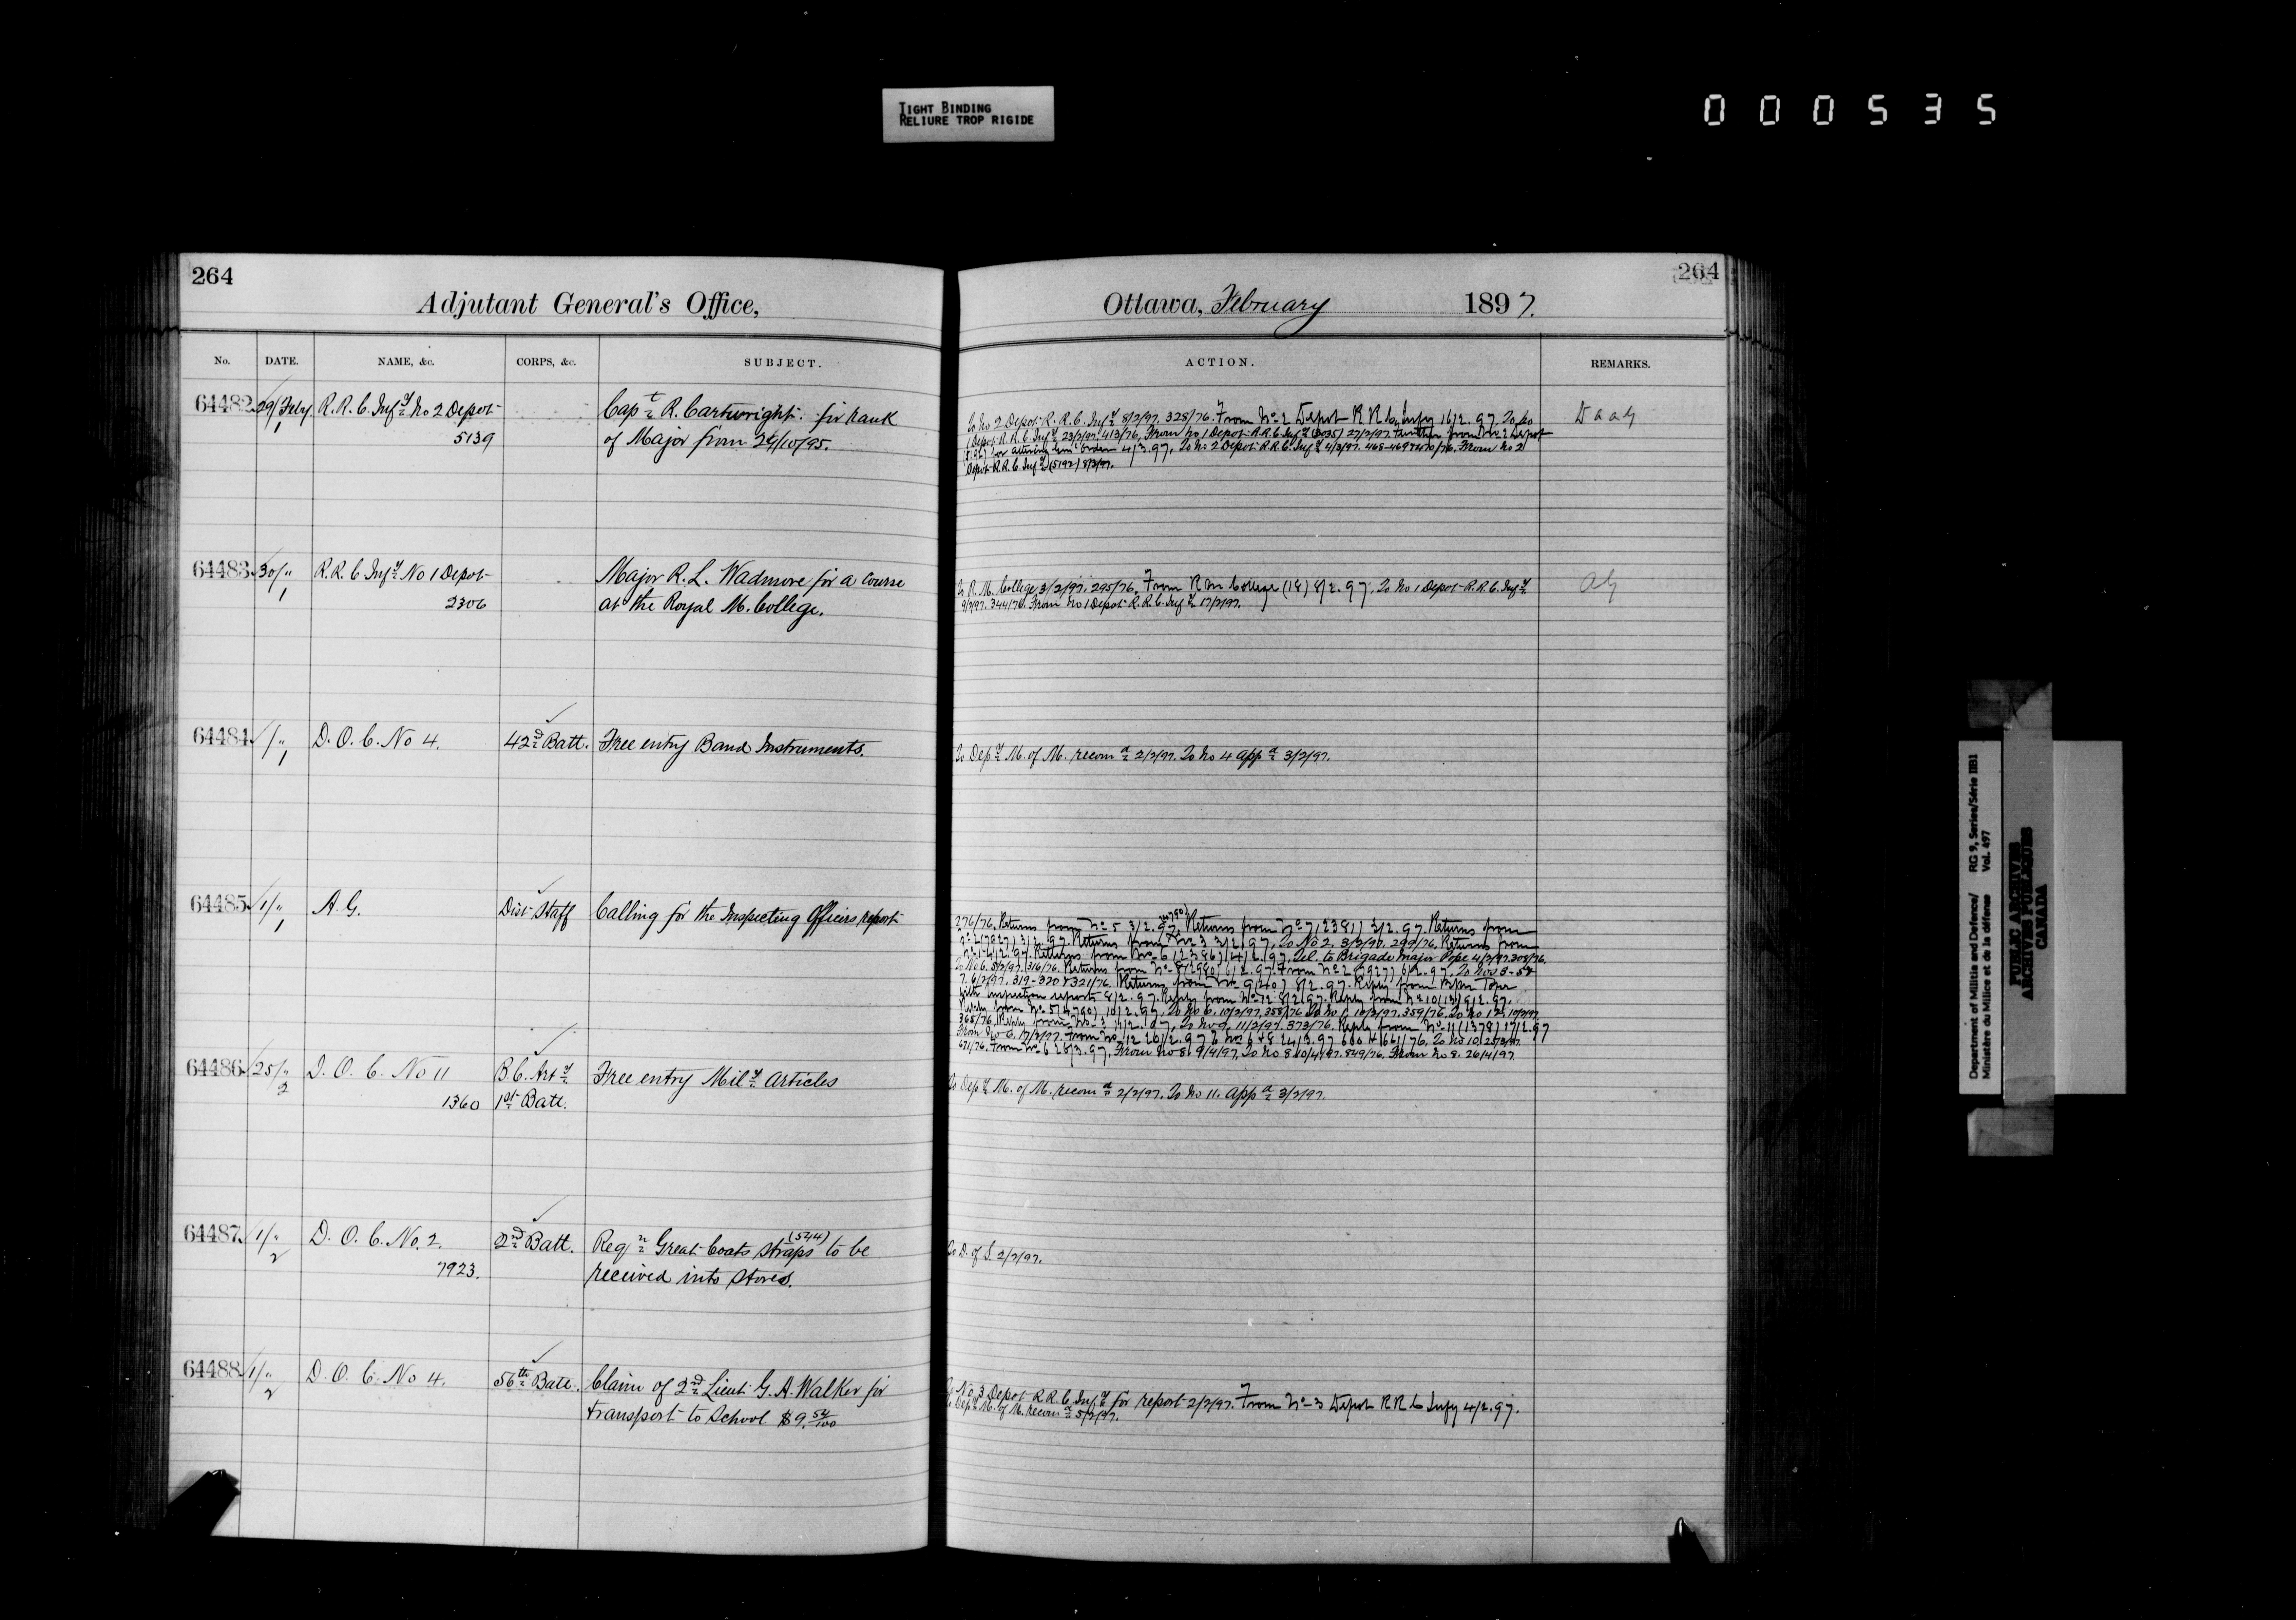 TIGHT BINDING
RELIURE TROP RIGIDE
000535
264
Adjutant General's Office,
No. DATE. NAME, &c. CORPS, &c. SUBJECT.
64482 29/1 Feby R.R.C. Infy No 2 Depot Capt R. Cartwright for rank
5139 of Major from 29/10/95.
64483 30/1 " R.R.C. Infy No 1 Depot Major R. L. Wadmore for a course
2306 at the Royal M. College.
64484 1/1 " D.O.C. No 4. 42nd Batt. Free entry Band Instruments.
64485 1/1 " A.G. Dist Staff Calling for the Inspecting Officers report
64486 25/2 " D.O.C. No 11 B.C. Arty Free entry Mily Articles
1360 1st Batt.
64487 1/2 " D.O.C. No. 2. 2nd Batt. Reqn Great Coats straps (544) to be
7923. received into Stores.
64488 1/2 " D.O.C. No 4. 56th Batt. Claim of 2nd Lieut G. A. Walker for
transport to School $9.54/100
264
Ottawa, February 1897.
ACTION. REMARKS.
To No 2 Depot R.R.C. Infy 8/2/97. 328/76. From No 2 Depot R R C Infy 16/2.97. To No D a a G
1 Depot R.R.C. Infy 23/2/97. 413/76. From No 1 Depot R.R.C. Infy 27/2/97. further from No 2 Depot
(5192) for 4/3.97. To No 2 Depot R.R.C. Infy 4/3/97. 468-469 & 470/76. From No 2
Depot R.R.C. Infy (5192) 8/3/97.
To R.M. College 3/2/97. 295/76. From R M College (18) 8/2.97. To No 1 Depot R.R.C. Infy AG
9/2/97. 344/76. From No 1 Depot R.R.C. Infy 17/2/97.
To Depy M. of M. recomd 2/2/97. To No 4 appd 3/2/97.
276/76. Returns from No 5 3/2.97. Returns from No 7 (2381) 3/2.97. Returns from
No 2 (7927) 3/2.97. Returns from No 3 3/2.97. To No 2. 3/2/97. 299/76. Returns from
No 1 4/2.97. Returns from No 6 (2386) 4/2.97. Tel. to Brigade Major Pope 4/2/97. 308/76.
To No 6. 5/2/97. 316/76. Returns from No 8 (2980) 6/2.97. From No 2 (7927) 6/2.97. To Nos 3-5 &
7. 6/2/97. 319-320 & 321/76. Returns from No 9 8/2.97. Reply from
with inspection reports 8/2.97. Reply from No 12 8/2.97. Reply from No 10 9/2.97.
Reply from No 5 (4790) 10/2.97. To No 6. 10/2/97. 358/76. To No 1. 10/2/97. 359/76. To No 12. 10/2/97.
365/76. Reply from No 3 11/2.97. To No 9. 11/2/97. 373/76. Reply from No 11 (1378) 17/2.97
From No 6. 17/2/97. From No 12 20/2.97. To Nos 6 & 8 24/3.97 660 & 661/76. To No 10 25/3/97.
671/76. From No 6 28/3.97. From No 8. 9/4/97. To No 8 10/4/97. 849/76. From No 8. 26/4/97.
To Depy M. of M. recomd 2/2/97. To No 11. appd 3/2/97.
To D. of S. 2/2/97.
To No 3 Depot R.R.C. Infy for report 2/2/97. From No 3 Depot R R C Infy 4/2.97.
To Depy M. of M. recomd 5/2/97.
Department of Militia and Defence/ RG 9, Series/Série IIB1
Ministère du Milice et de la défense Vol. 497
PUBLIC ARCHIVES
ARCHIVES PUBLIQUES
CANADA